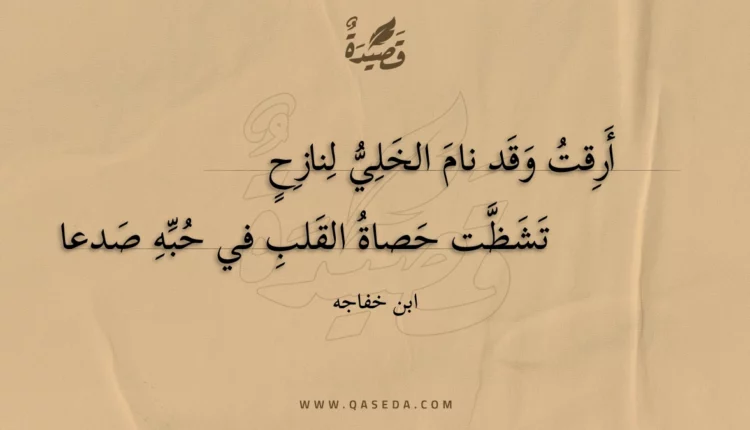 قَصِيدَةٌ
أَرِقتُ وَقَد نامَ الخَلِيُّ لِنازِحٍ
تَشَظَّت حَصاةُ القَلبِ في حُبِّهِ صَدعا
ابن خفاجه
WWW.QASEDA.COM